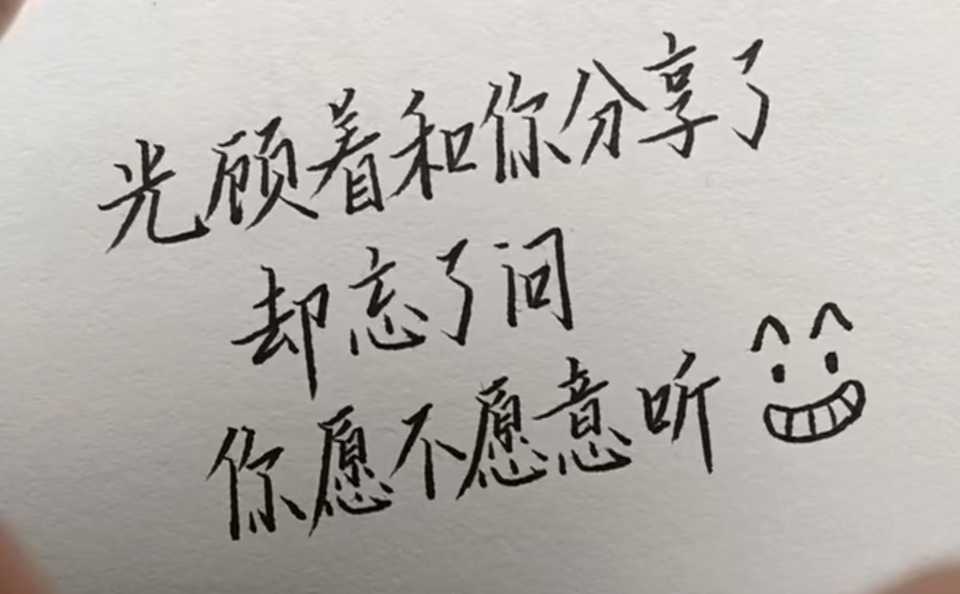 光顾着和你分享了
却忘了问
你愿不愿意听